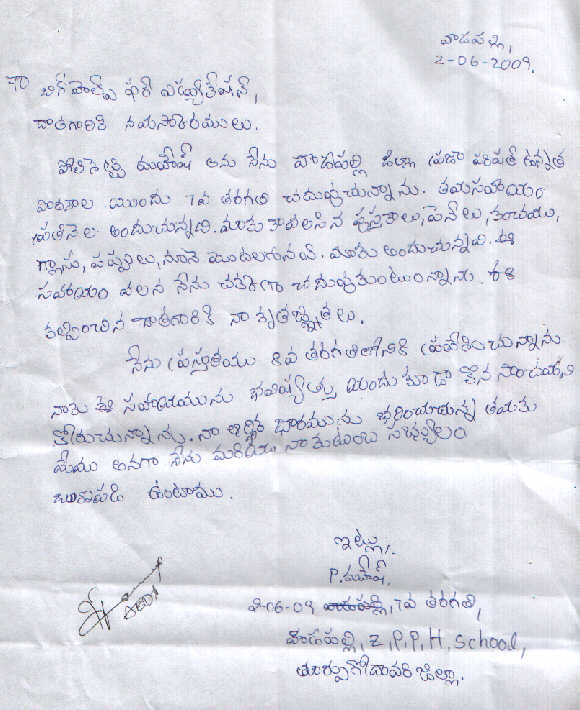 వాడపల్లి,
2-06-2009.
బిగ్ హెల్ప్ ఫర్ ఎడ్యుకేషన్,
దాతగారికి నమస్కారములు.
పోలిశెట్టి మహేష్ అను నేను వాడపల్లి జిల్లా ప్రజా పరిషత్ ఉన్నత
పాఠశాల యందు 7వ తరగతి చదువుచున్నాను. తమసహాయం
ప్రతినెల అందుచున్నది. మాకు కావలసిన పుస్తకాలు, పెన్‌లు, కంచము,
గ్లాసు, పప్పులు, నూనె మొదలగునవి మాకు అందుచున్నవి. ఈ
సహాయం వలన నేను చక్కగా చదువుకుంటున్నాను. ఇది
కల్పించిన దాతగారికి నా కృతజ్ఞతలు.
నేను ప్రస్తుతము 8వ తరగతిలోనికి ప్రవేశించుచున్నాను
నాకు ఈ సహాయమును భవిష్యత్తు యందు కూడా
కోరుచున్నాను. నా ఆర్థిక భారమును భరించుచున్న తమకు
మేము అనగా నేను మరియు నా కుటుంబ సభ్యులం
ఋణపడి ఉంటాము.
ఇట్లు,
P. మహేష్.
2-06-09 7వ తరగతి,
వాడపల్లి, Z, P, P, H, School,
తూర్పుగోదావరి జిల్లా.